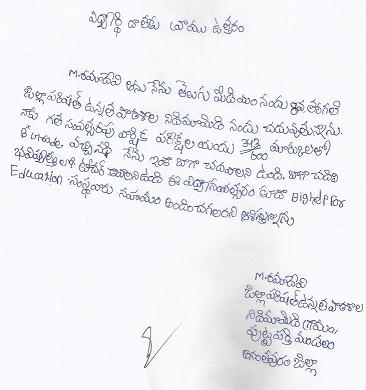 విద్యార్థి దాతకు వ్రాయు ఉత్తరం
M.రమాదేవి అను నేను తెలుగు మీడియం నందు 8వ తరగతి
జిల్లాపరిషత్ ఉన్నత పాఠశాల నిడిమామిడి నందు చదువుతున్నాను.
నాకు గత సంవత్సరపు వార్షిక పరీక్షల యందు 343/600 మార్కులతో
B+ Grade వచ్చినది నేను ఇంకా బాగా చదవాలని ఉంది. బాగా చదివి
భవిష్యత్తులో టీచర్ కావాలనిఉంది ఈ విద్యాసంవత్సరం కూడా Bighelp for
Education సంస్థవారు సహాయం అందించగలరని ఆశిస్తున్నాను
M.రమాదేవి
జిల్లాపరిషత్ ఉన్నత పాఠశాల
నిడిమామిడి గ్రామం,
పుట్టపర్తి మండలం
అనంతపురం జిల్లా